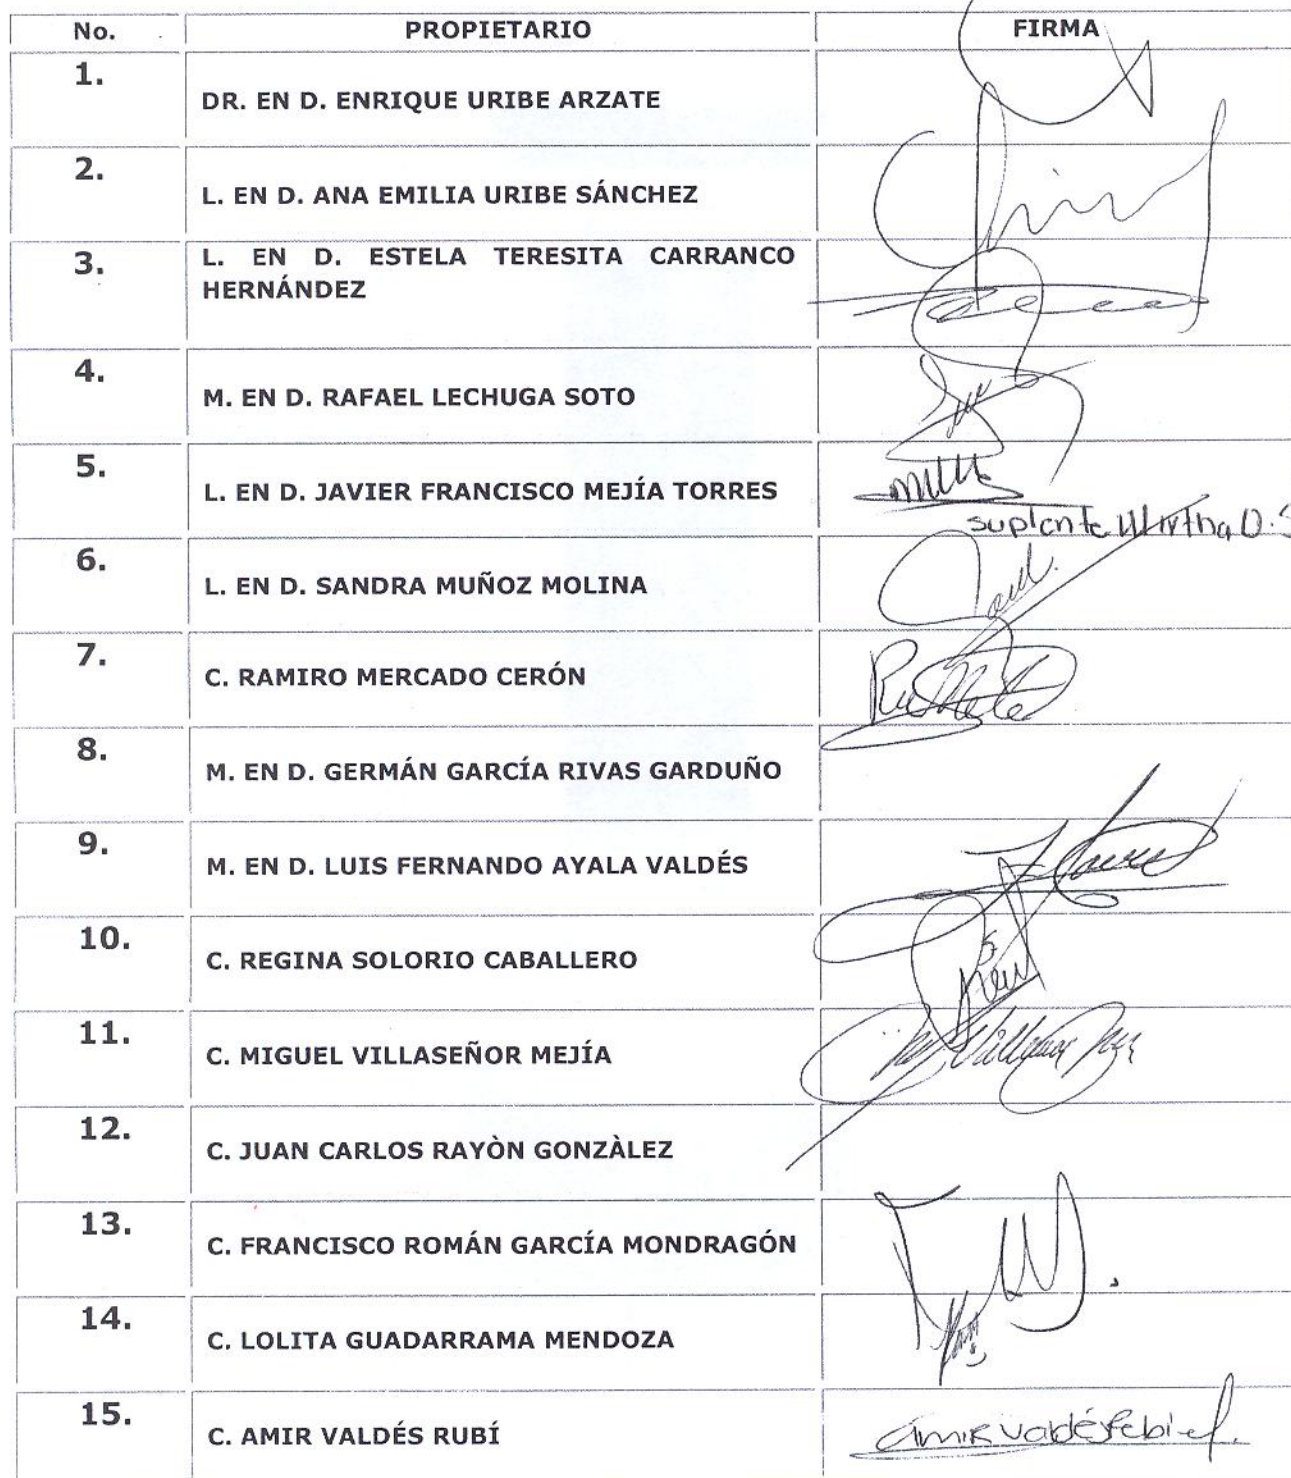 No. PROPIETARIO FIRMA
1. DR. EN D. ENRIQUE URIBE ARZATE
2. L. EN D. ANA EMILIA URIBE SÁNCHEZ
3. L. EN D. ESTELA TERESITA CARRANCO
HERNÁNDEZ
4. M. EN D. RAFAEL LECHUGA SOTO
5. L. EN D. JAVIER FRANCISCO MEJÍA TORRES
suplente
6. L. EN D. SANDRA MUÑOZ MOLINA
7. C. RAMIRO MERCADO CERÓN
8. M. EN D. GERMÁN GARCÍA RIVAS GARDUÑO
9. M. EN D. LUIS FERNANDO AYALA VALDÉS
10. C. REGINA SOLORIO CABALLERO
11. C. MIGUEL VILLASEÑOR MEJÍA
12. C. JUAN CARLOS RAYÒN GONZÀLEZ
13. C. FRANCISCO ROMÁN GARCÍA MONDRAGÓN
14. C. LOLITA GUADARRAMA MENDOZA
15. C. AMIR VALDÉS RUBÍ Amir Valdés